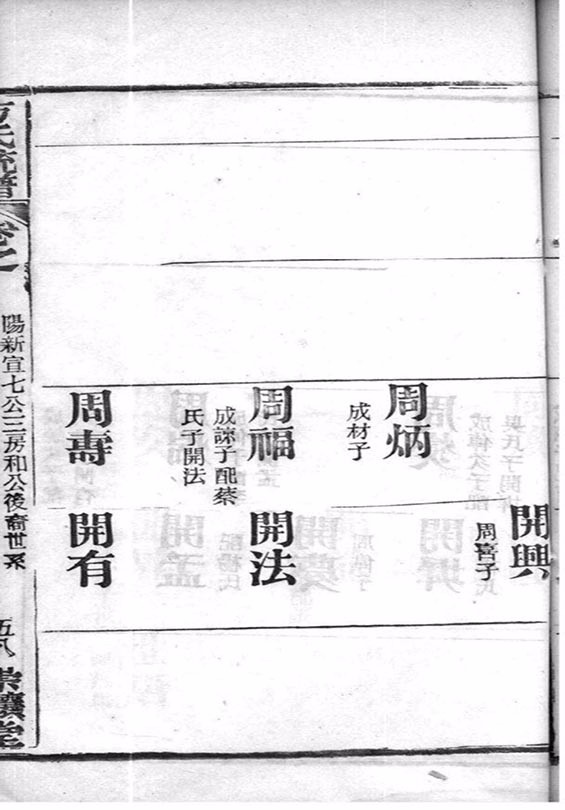 開興
周喜子
周炳
成材子
周福
成諒子配蔡
氏子開法
開法
周壽
開有
方氏統譜
卷之
陽新宣七公三房和公後裔世系
五八
崇讓堂